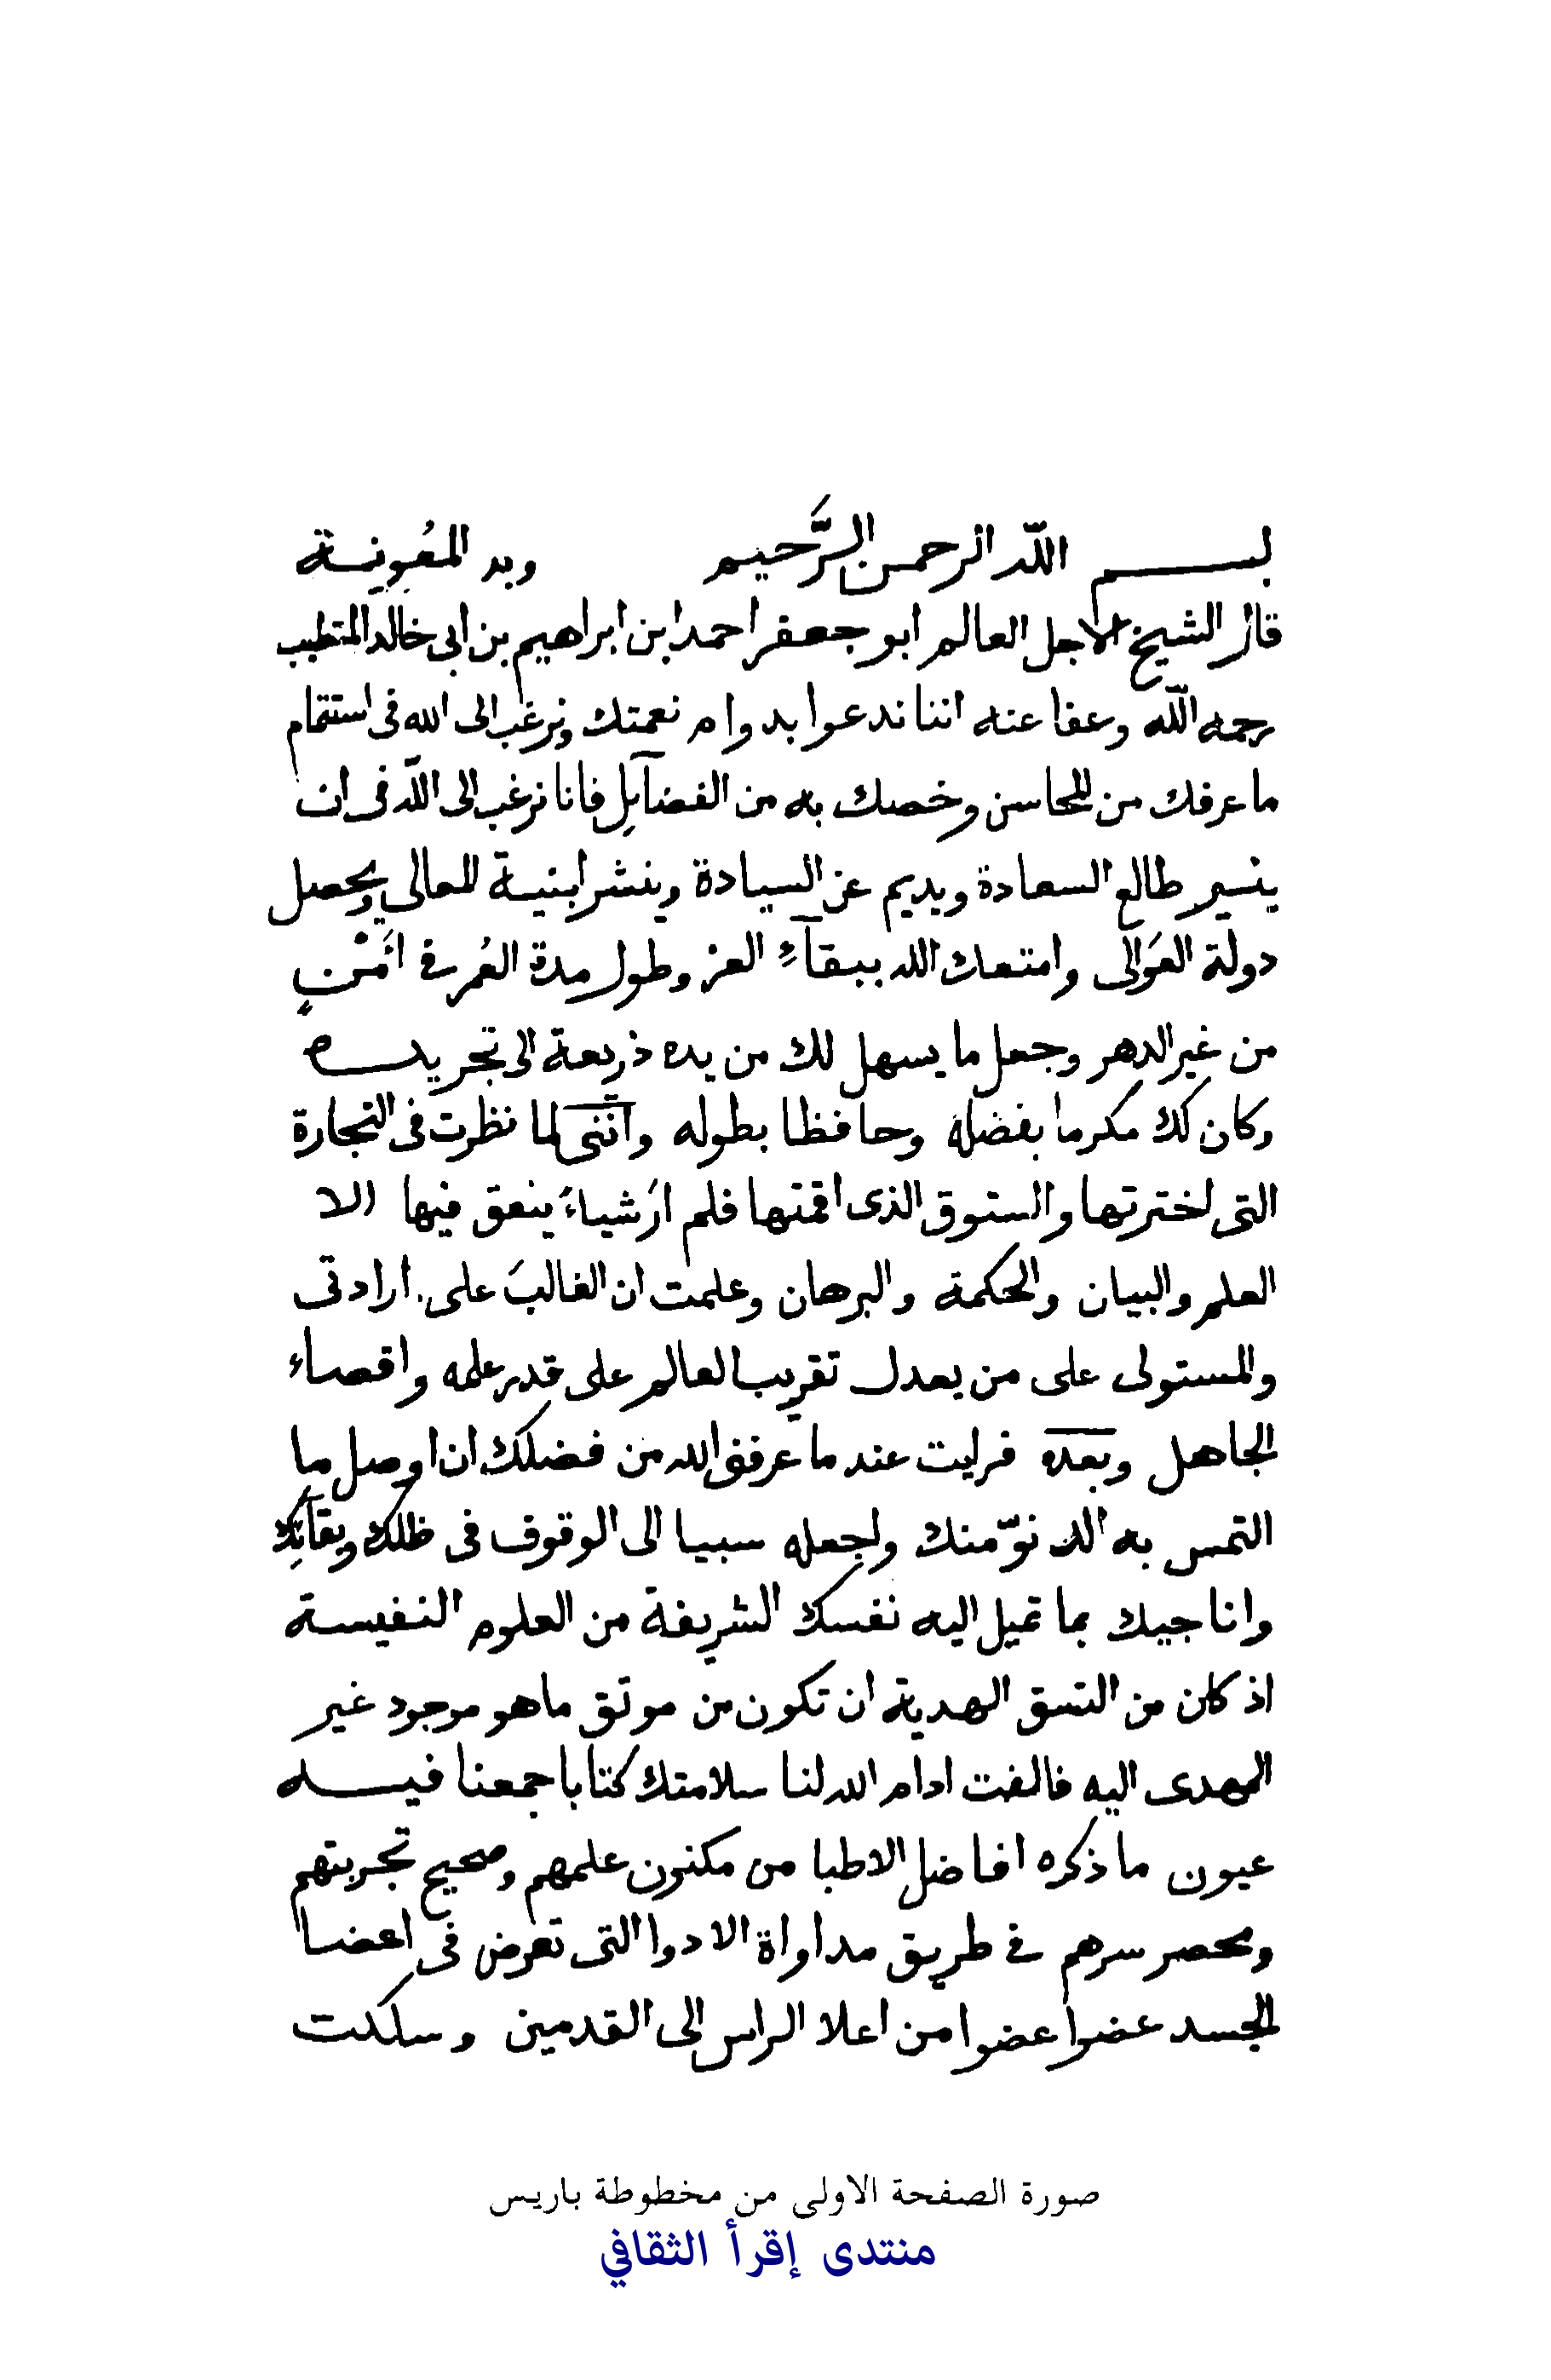 بسم الله الرحمن الرَّحيم وبه المعُونة
قال الشيخ الاجل العالم ابو جعفر احمد ابن ابراهيم بن ابى خالد المتطبب
رحمه الله وعفا عنه اننا ندعوا بدوام نعمتك ونرغب الى الله فى استتمام
ما عرفك من المحاسن وخصك به من الفضآيل فانا نرغب الى الله فى ان
ينسير طالع السعادة ويديم عز السيادة وينشر ابنية المعالى ويحصل
دولة العَوَالى وامتعك الله ببقآءِ العز وطول مدة العُمر فى امَنْنٍ
من غير الدهر وجعل ما يسهل لك من يده ذريعة الى تجريده
وكان لك مكرما بفضله وحافظا بطوله واننى لما نظرت فى التجارة
التى اخترتها والسوق الذى اقمتها فلم ارَ شياءَ ينفق فيها الا
العلم والبيان والحكمة والبرهان وعلمت ان الغالبَ على ارادتى
والمستولى على من يعدل تقريب العالم على قدر علمه واقصاء
الجاهل وبعده فرايت عند ما عرفنى الله من فضلك ان اوصل ما
التمس به الد نوّ منك واجعله سببا الى الوقوف فى ظلك وبقآئِك
واناجيك بما تميل اليه نفسك الشريفة من العلوم النفيسة
اذ كان من التسق الهدية ان تكون من موثق ما هو موجود غير
المهدى اليه فالفت ادام الله لنا سلامتك كتابا جمعنا فيه
عيون ما ذكره افاضل الاطبا من مكنون علمهم وصحيح تجربتهم
ومحصر سرهم فى طريق مداواة الادوا التى تعرض فى اعضا
الجسد عضوا عضوا من اعلا الراس الى القدمين وسلكت
صورة الصفحة الاولى من مخطوطة باريس
منتدى إقرأ الثقافي